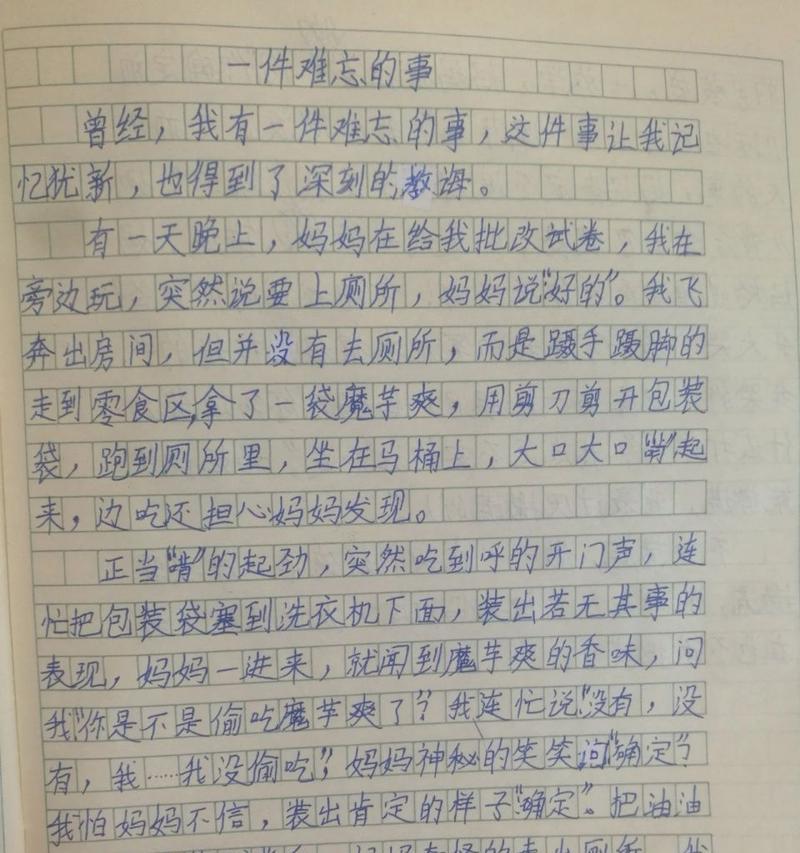 一件难忘的事
曾经，我有一件难忘的事，这件事让我记
忆犹新，也得到了深刻的教诲。
有一天晚上，妈妈在给我批改试卷，我在
旁边玩，突然说要上厕所，妈妈说“好的”。我飞
奔出房间，但并没有去厕所，而是蹑手蹑脚的
走到零食区，拿了一袋魔芋爽，用剪刀剪开包装
袋，跑到厕所里，坐在马桶上，大口大口“啃”起
来，边吃还担心妈妈发现。
正当“啃”的起劲，突然吃到呼的开门声，连
忙把包装袋塞到洗衣机下面，装出若无其事的
表现，妈妈一进来，就闻到魔芋爽的香味，问
我“你是不是偷吃魔芋爽了”？我连忙说“没有，没
有，我……我没偷吃”，妈妈神秘的笑笑问“确定”？
我怕妈妈不信，装出肯定的样子“确定”。把油油